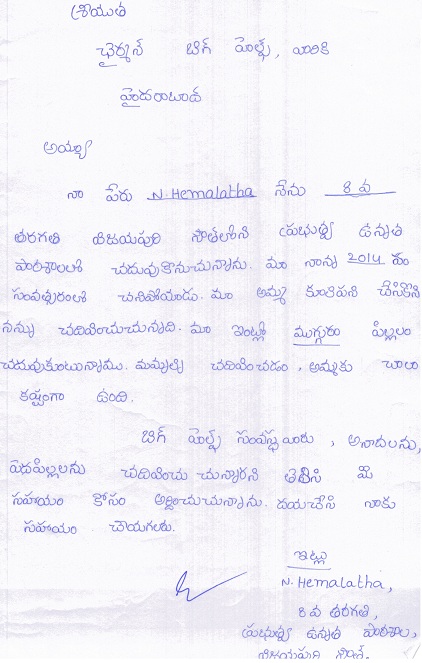 శ్రీయుత
ఛైర్మన్ బిగ్ హెల్ప్, వారికి
హైదరాబాద
అయ్యా
నా పేరు N. Hemalatha నేను 8 వ
తరగతి విజయపురి సౌత్‌లోని ప్రభుత్వ ఉన్నత
పాఠశాలలో చదువుకొనుచున్నాను. మా నాన్న 2014 వ
సంవత్సరంలో చనిపోయాడు. మా అమ్మ కూలిపని చేసుకొని
నన్ను చదివించుచున్నది. మా ఇంట్లో ముగ్గురు పిల్లలం
చదువుకుంటున్నాము. మమ్మల్ని చదివించడం, అమ్మకు చాలా
కష్టంగా ఉంది.
బిగ్ హెల్ప్ సంవస్థ వారు, అనాదలను,
పేదపిల్లలను చదివించు చున్నారని తెలిసి మీ
సహాయం కోసం అర్థించుచున్నాను. దయచేసి నాకు
సహాయం చేయగలరు.
ఇట్లు
N. Hemalatha,
8 వ తరగతి,
ప్రభుత్వ ఉన్నత పాఠశాల,
విజయపురి సౌత్.